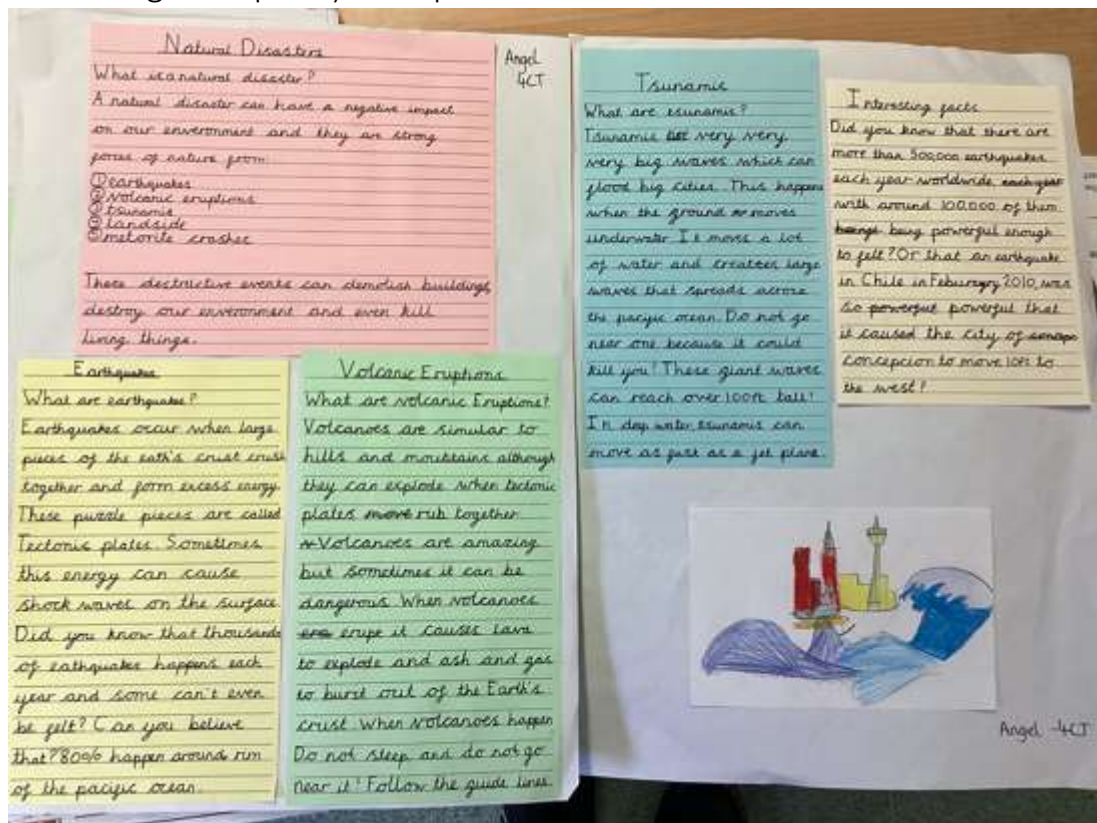 Natural Disasters
What is a natural disaster?
A natural disaster can have a negative impact
on our enveronment and they are strong
forces of nature from:
① earthquakes
② volcanic eruptions
③ tsunamis
④ landside
⑤ metorite crashes
These destructive events can demolish buildings,
destroy our enveronment and even kill
living things.
Angel
4CT
Earthquakes
What are earthquakes?
Earthquakes occur when large
pieces of the eath's crust crush
together and form excess energy.
These puzzle pieces are called
Tectonic plates. Sometimes
this energy can cause
shock waves on the surface.
Did you know that thousands
of eathquakes happens each
year and some can't even
be felt? Can you believe
that? 80% happen around rim
of the pacific ocean.
Volcanic Eruptions
What are volcanic Eruptions?
Volcanoes are simular to
hills and mountains although
they can explode when tectonic
plates move rub together
Volcanoes are amazing
but sometimes it can be
dangerous. When volcanoes
erupe it causes lava
to explode and ash and gas
to burst out of the Earth's
crust. When volcanoes happen
Do not sleep and do not go
near it! Follow the guide lines.
Tsunamis
What are tsunamis?
Tsunamis very very,
very big waves which can
flood big cities. This happens
when the ground moves
underwater It moves a lot
of water and creates large
waves that spreads across
the pacific ocean. Do not go
near one because it could
kill you! These giant waves
can reach over 100ft tall!
In deep water, tsunamis can
move as fast as a jet plane.
Interesting facts
Did you know that there are
more than 500,000 earthquakes
each year worldwide, each year
with around 100,000 of them
beings being powerful enough
to felt? Or that an earthquake
in Chile in Feburary 2010, was
so powerful powerful that
it caused the city of
concepcion to move 10ft to
the west?
Angel -4CT